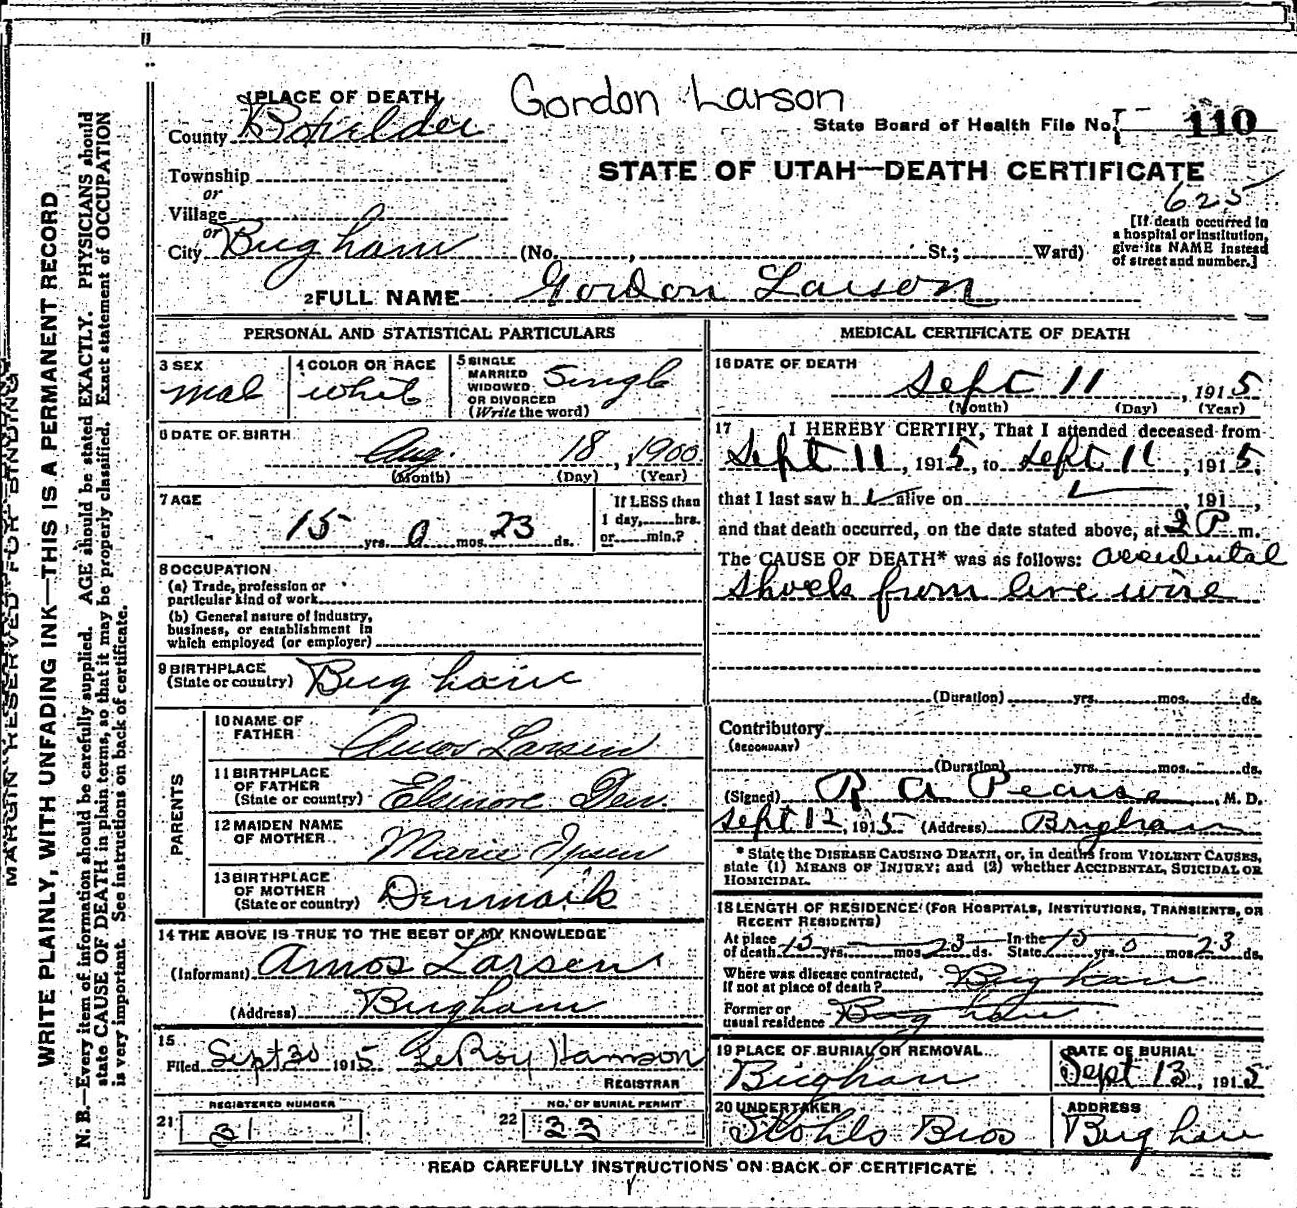 Gordon Larson
1 PLACE OF DEATH
County Boxelder
State Board of Health File No. 110
Township
or
Village
or
City Brigham (No. , St.; Ward)
STATE OF UTAH—DEATH CERTIFICATE
625
[If death occurred in
a hospital or institution,
give its NAME instead
of street and number.]
2 FULL NAME Gordon Larson
PERSONAL AND STATISTICAL PARTICULARS
3 SEX
mal
4 COLOR OR RACE
whit
5 SINGLE
MARRIED
WIDOWED
OR DIVORCED
(Write the word)
Single
6 DATE OF BIRTH
Aug. 18, 1900
(Month) (Day) (Year)
7 AGE
15 yrs. 0 mos. 23 ds.
If LESS than
1 day, hrs.
or min.?
8 OCCUPATION
(a) Trade, profession or
particular kind of work
(b) General nature of industry,
business, or establishment in
which employed (or employer)
9 BIRTHPLACE
(State or country) Brigham
PARENTS
10 NAME OF
FATHER
Amos Larsen
11 BIRTHPLACE
OF FATHER
(State or country) Elsinore Den.
12 MAIDEN NAME
OF MOTHER
Marie Ipsen
13 BIRTHPLACE
OF MOTHER
(State or country) Denmark
14 THE ABOVE IS TRUE TO THE BEST OF MY KNOWLEDGE
(Informant) Amos Larsen
(Address) Brigham
15
Filed Sept 30 1915 LeRoy Hamson
REGISTRAR
21 REGISTERED NUMBER
31
22 NO. OF BURIAL PERMIT
33
MEDICAL CERTIFICATE OF DEATH
16 DATE OF DEATH
Sept 11, 1915
(Month) (Day) (Year)
17 I HEREBY CERTIFY, That I attended deceased from
Sept 11, 1915, to Sept 11, 1915,
that I last saw h alive on , 191 ,
and that death occurred, on the date stated above, at 2 P m.
The CAUSE OF DEATH* was as follows: accidental
shock from live wire
(Duration) yrs. mos. ds.
Contributory
(SECONDARY)
(Duration) yrs. mos. ds.
(Signed) R A Pearse, M. D.
Sept 12, 1915 (Address) Brigham
* State the DISEASE CAUSING DEATH, or, in deaths from VIOLENT CAUSES,
state (1) MEANS OF INJURY; and (2) whether ACCIDENTAL, SUICIDAL OR
HOMICIDAL.
18 LENGTH OF RESIDENCE (FOR HOSPITALS, INSTITUTIONS, TRANSIENTS, OR
RECENT RESIDENTS)
At place
of death 15 yrs. mos. 23 ds. In the
State 15 yrs 0 mos 23 ds.
Where was disease contracted,
if not at place of death? Brigham
Former or
usual residence Brigham
19 PLACE OF BURIAL OR REMOVAL
Brigham
DATE OF BURIAL
Sept 13, 1915
20 UNDERTAKER
Stohls Bros
ADDRESS
Brigham
READ CAREFULLY INSTRUCTIONS ON BACK OF CERTIFICATE
MARGIN RESERVED FOR BINDING
WRITE PLAINLY, WITH UNFADING INK—THIS IS A PERMANENT RECORD
N. B.—Every item of information should be carefully supplied. AGE should be stated EXACTLY. PHYSICIANS should
state CAUSE OF DEATH in plain terms, so that it may be properly classified. Exact statement of OCCUPATION
is very important. See instructions on back of certificate.